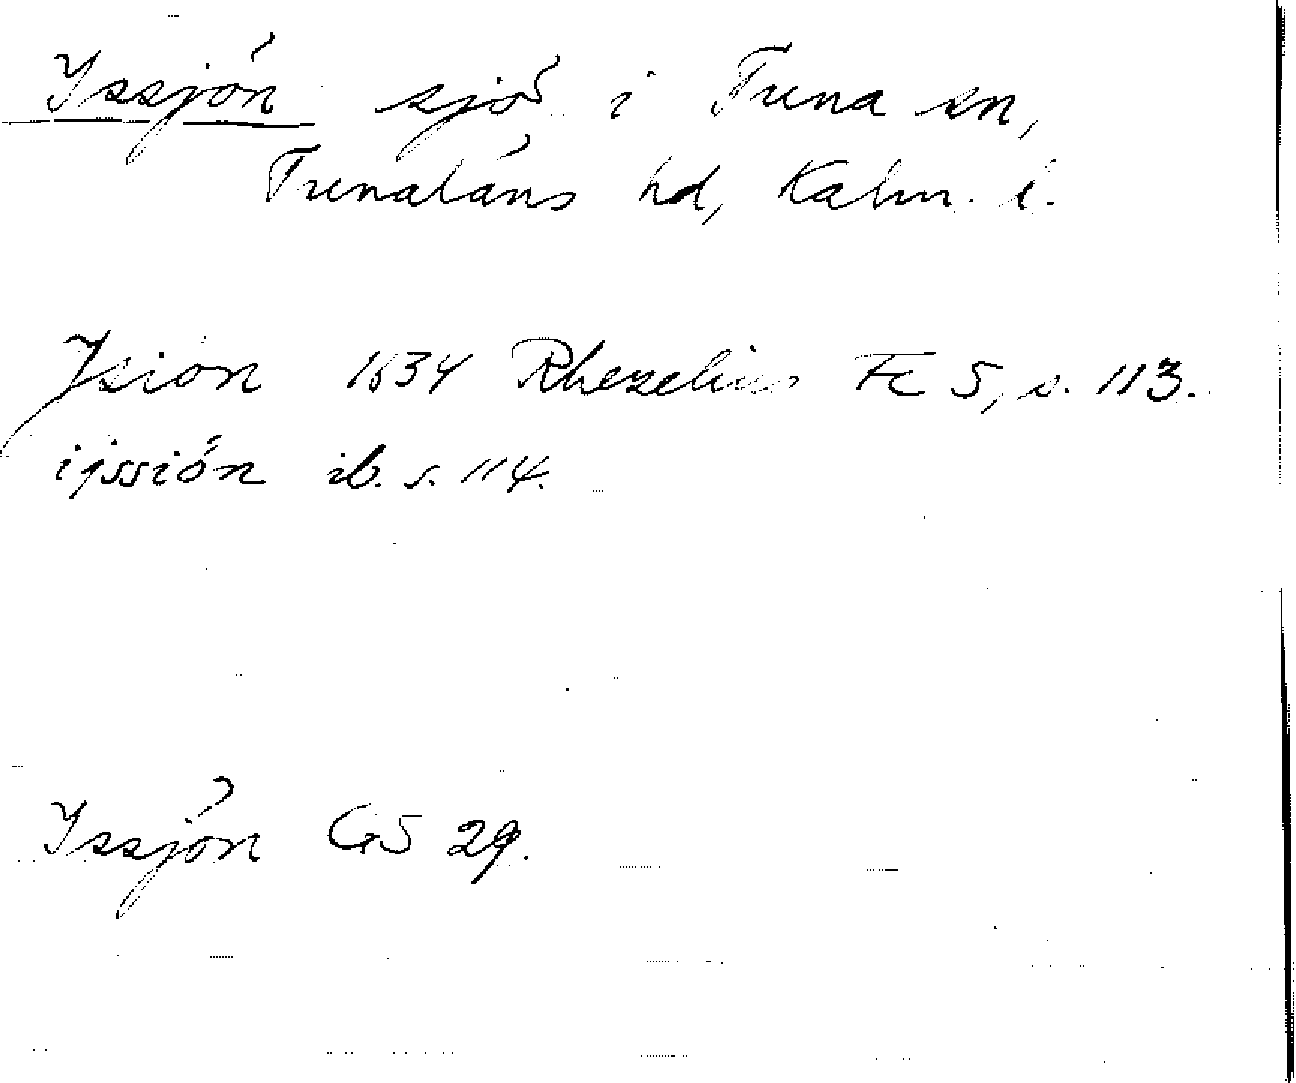 Yssjön sjö i Tuna sn,
Tunaläns hd, Kalm. l.
Ysion 1634 Rhezelius Fc 5, s. 113.
ijssiön ib. s. 114.
Yssjön GS 29.